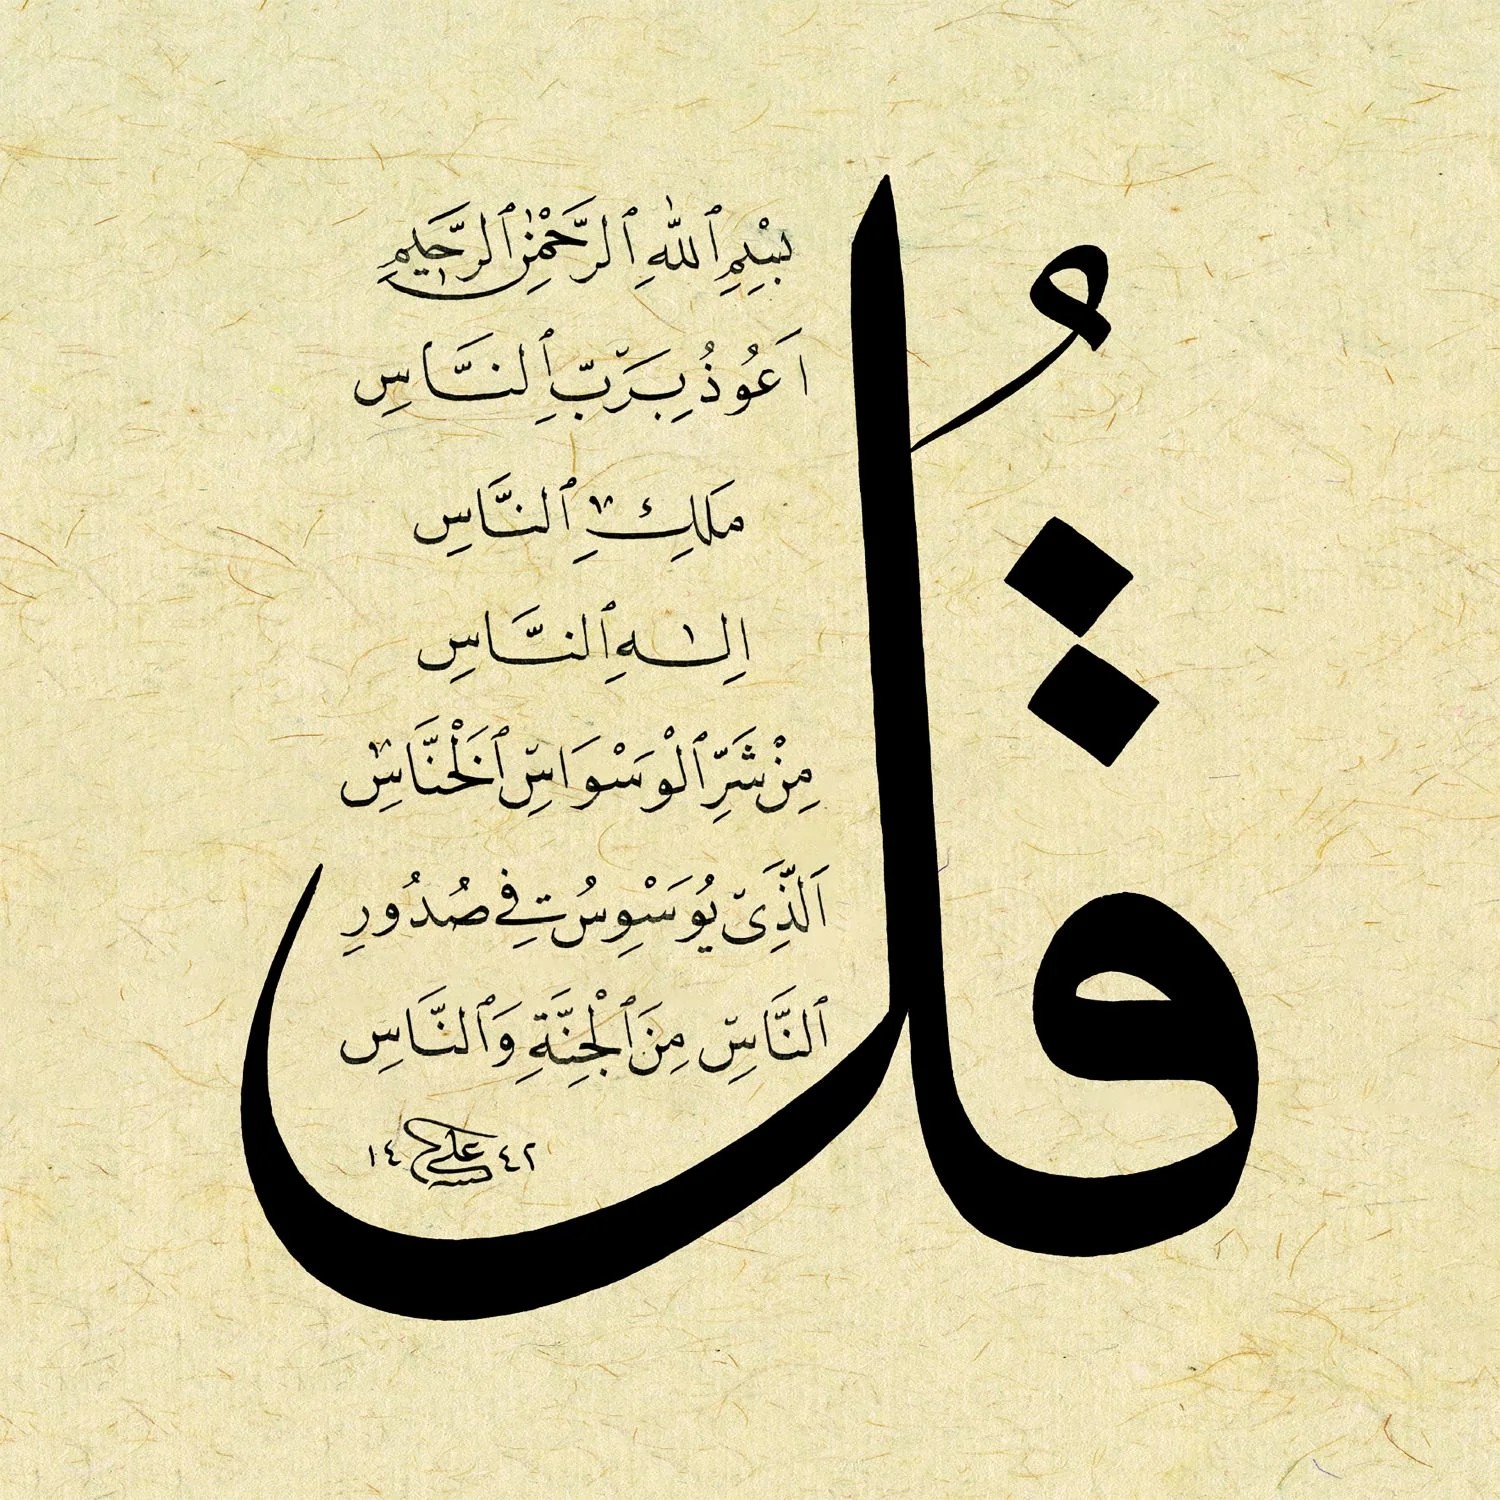 قُلْ
بِسْمِ ٱللّٰهِ ٱلرَّحْمٰنِ ٱلرَّحِيمِ
اَعُوذُ بِرَبِّ ٱلنَّاسِ
مَلِكِ ٱلنَّاسِ
اِلٰهِ ٱلنَّاسِ
مِنْ شَرِّ ٱلْوَسْوَاسِ ٱلْخَنَّاسِ
اَلَّذِى يُوَسْوِسُ فِى صُدُورِ
ٱلنَّاسِ مِنَ ٱلْجِنَّةِ وَٱلنَّاسِ
١٤ ٤٢